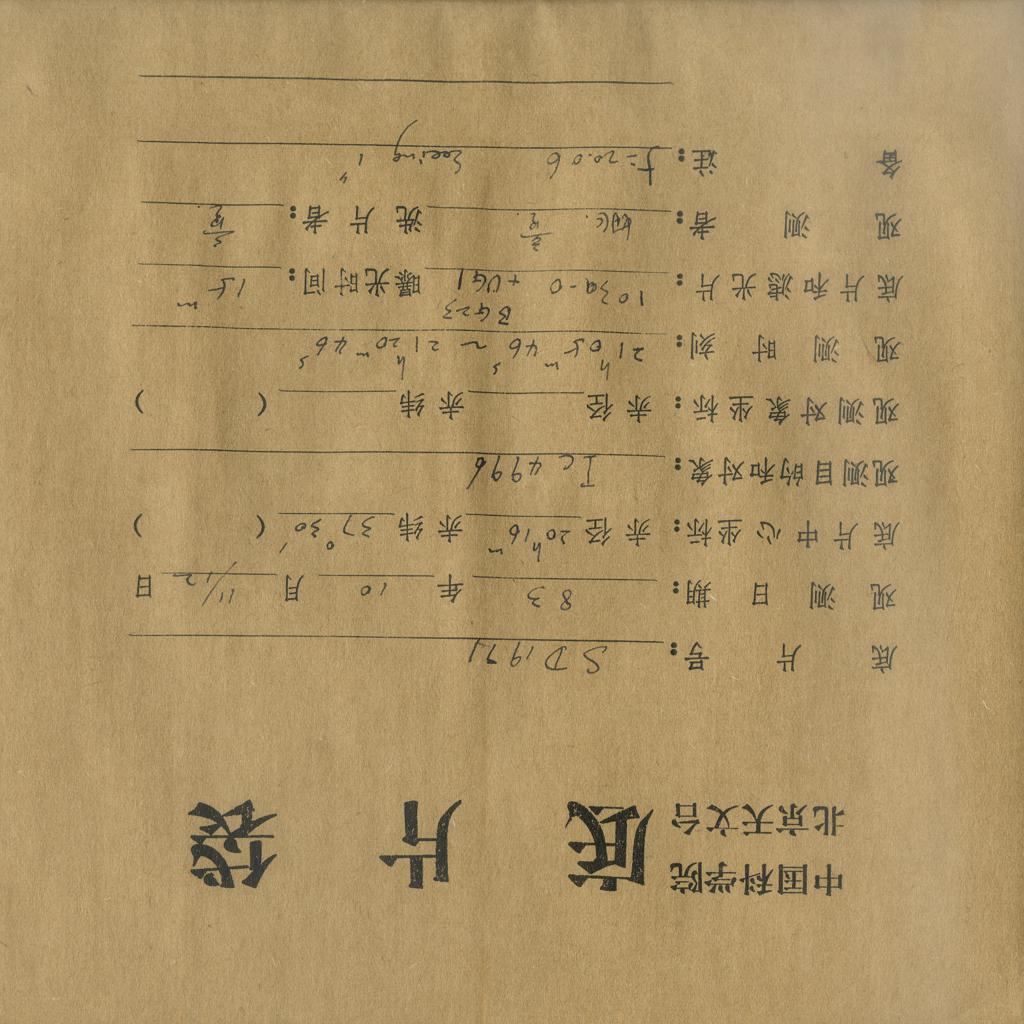 中国科学院
北京天文台 底片袋
底片号: SD1971
观测日期: 83年10月11/12日
底片中心坐标: 赤径20h16m赤纬37°30′( )
观测目的和对象: IC 4996
观测对象坐标: 赤径 赤纬 ( )
观测时刻: 21h05m46s ~ 21h20m46s
底片和滤光片: 103a-O + UG1 BG23 曝光时间: 15m
观测者: 洗片者:
备注: f=20.06 Seeing 1″